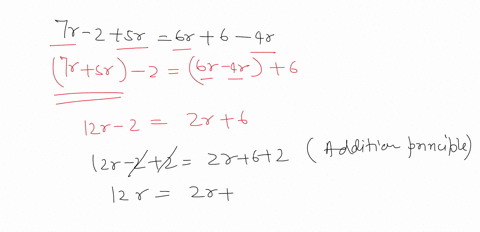 7r - 2 + 5r = 6r + 6 - 4r
(7r + 5r) - 2 = (6r - 4r) + 6
12r - 2 = 2r + 6
12r - 2 + 2 = 2r + 6 + 2 (Addition principle)
12r = 2r +